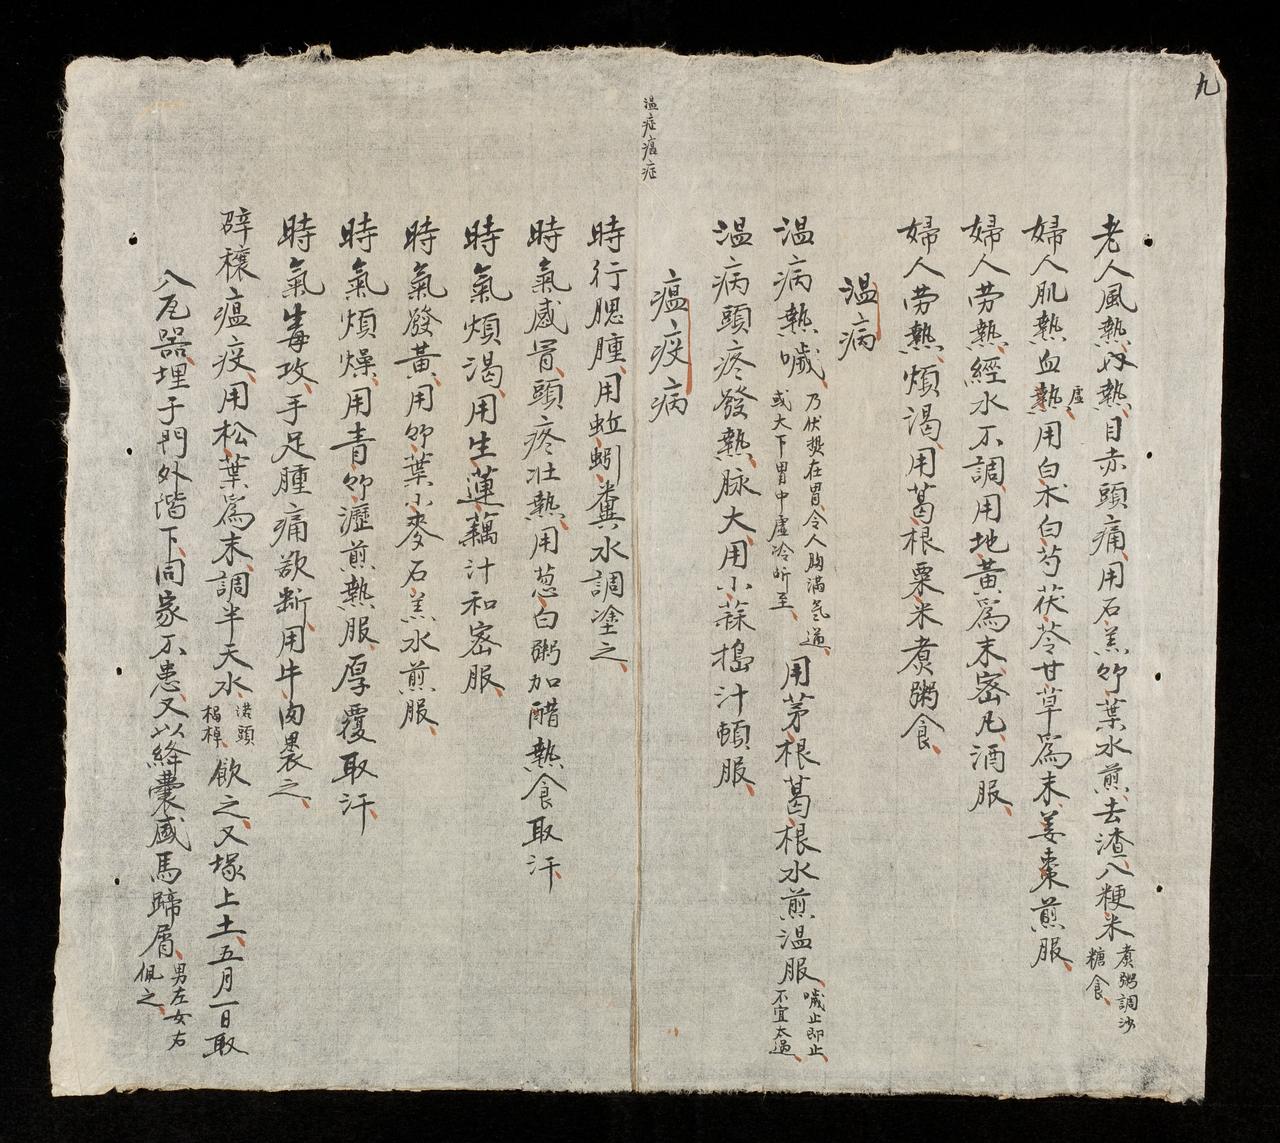 九
老人風熱内熱目赤頭痛用石羔竹葉水煎去渣入粳米煮粥調沙糖食
婦人肌熱血虛熱用白朮白芍茯苓甘草為末姜棗煎服
婦人劳熱經水不調用地黃為末密凡酒服
婦人劳熱煩渴用葛根粟米煮粥食
溫病
溫病熱噦乃伏熱在胃令人胸滿氣逆或大下胃中虛冷所至用茅根葛根水煎溫服噦止即止不宜太過
溫病頭疼發熱脉大用小蒜搗汁頓服
瘟疫病
溫症瘟症
時行腮腫用蚯蚓糞水調塗之
時氣感冒頭疼壮熱用葱白粥加醋熱食取汗
時氣煩渴用生蓮藕汁和密服
時氣發黃用竹葉小麥石羔水煎服
時氣煩燥用青竹瀝煎熱服厚覆取汗
時氣毒攻手足腫痛欲断用牛肉裹之
辟穰瘟疫用松葉為末調半天水諾頭槝棹飲之又塚上土五月一日取
入瓦器埋于門外階下同家不患又以絳囊盛馬蹄屑男左女右佩之